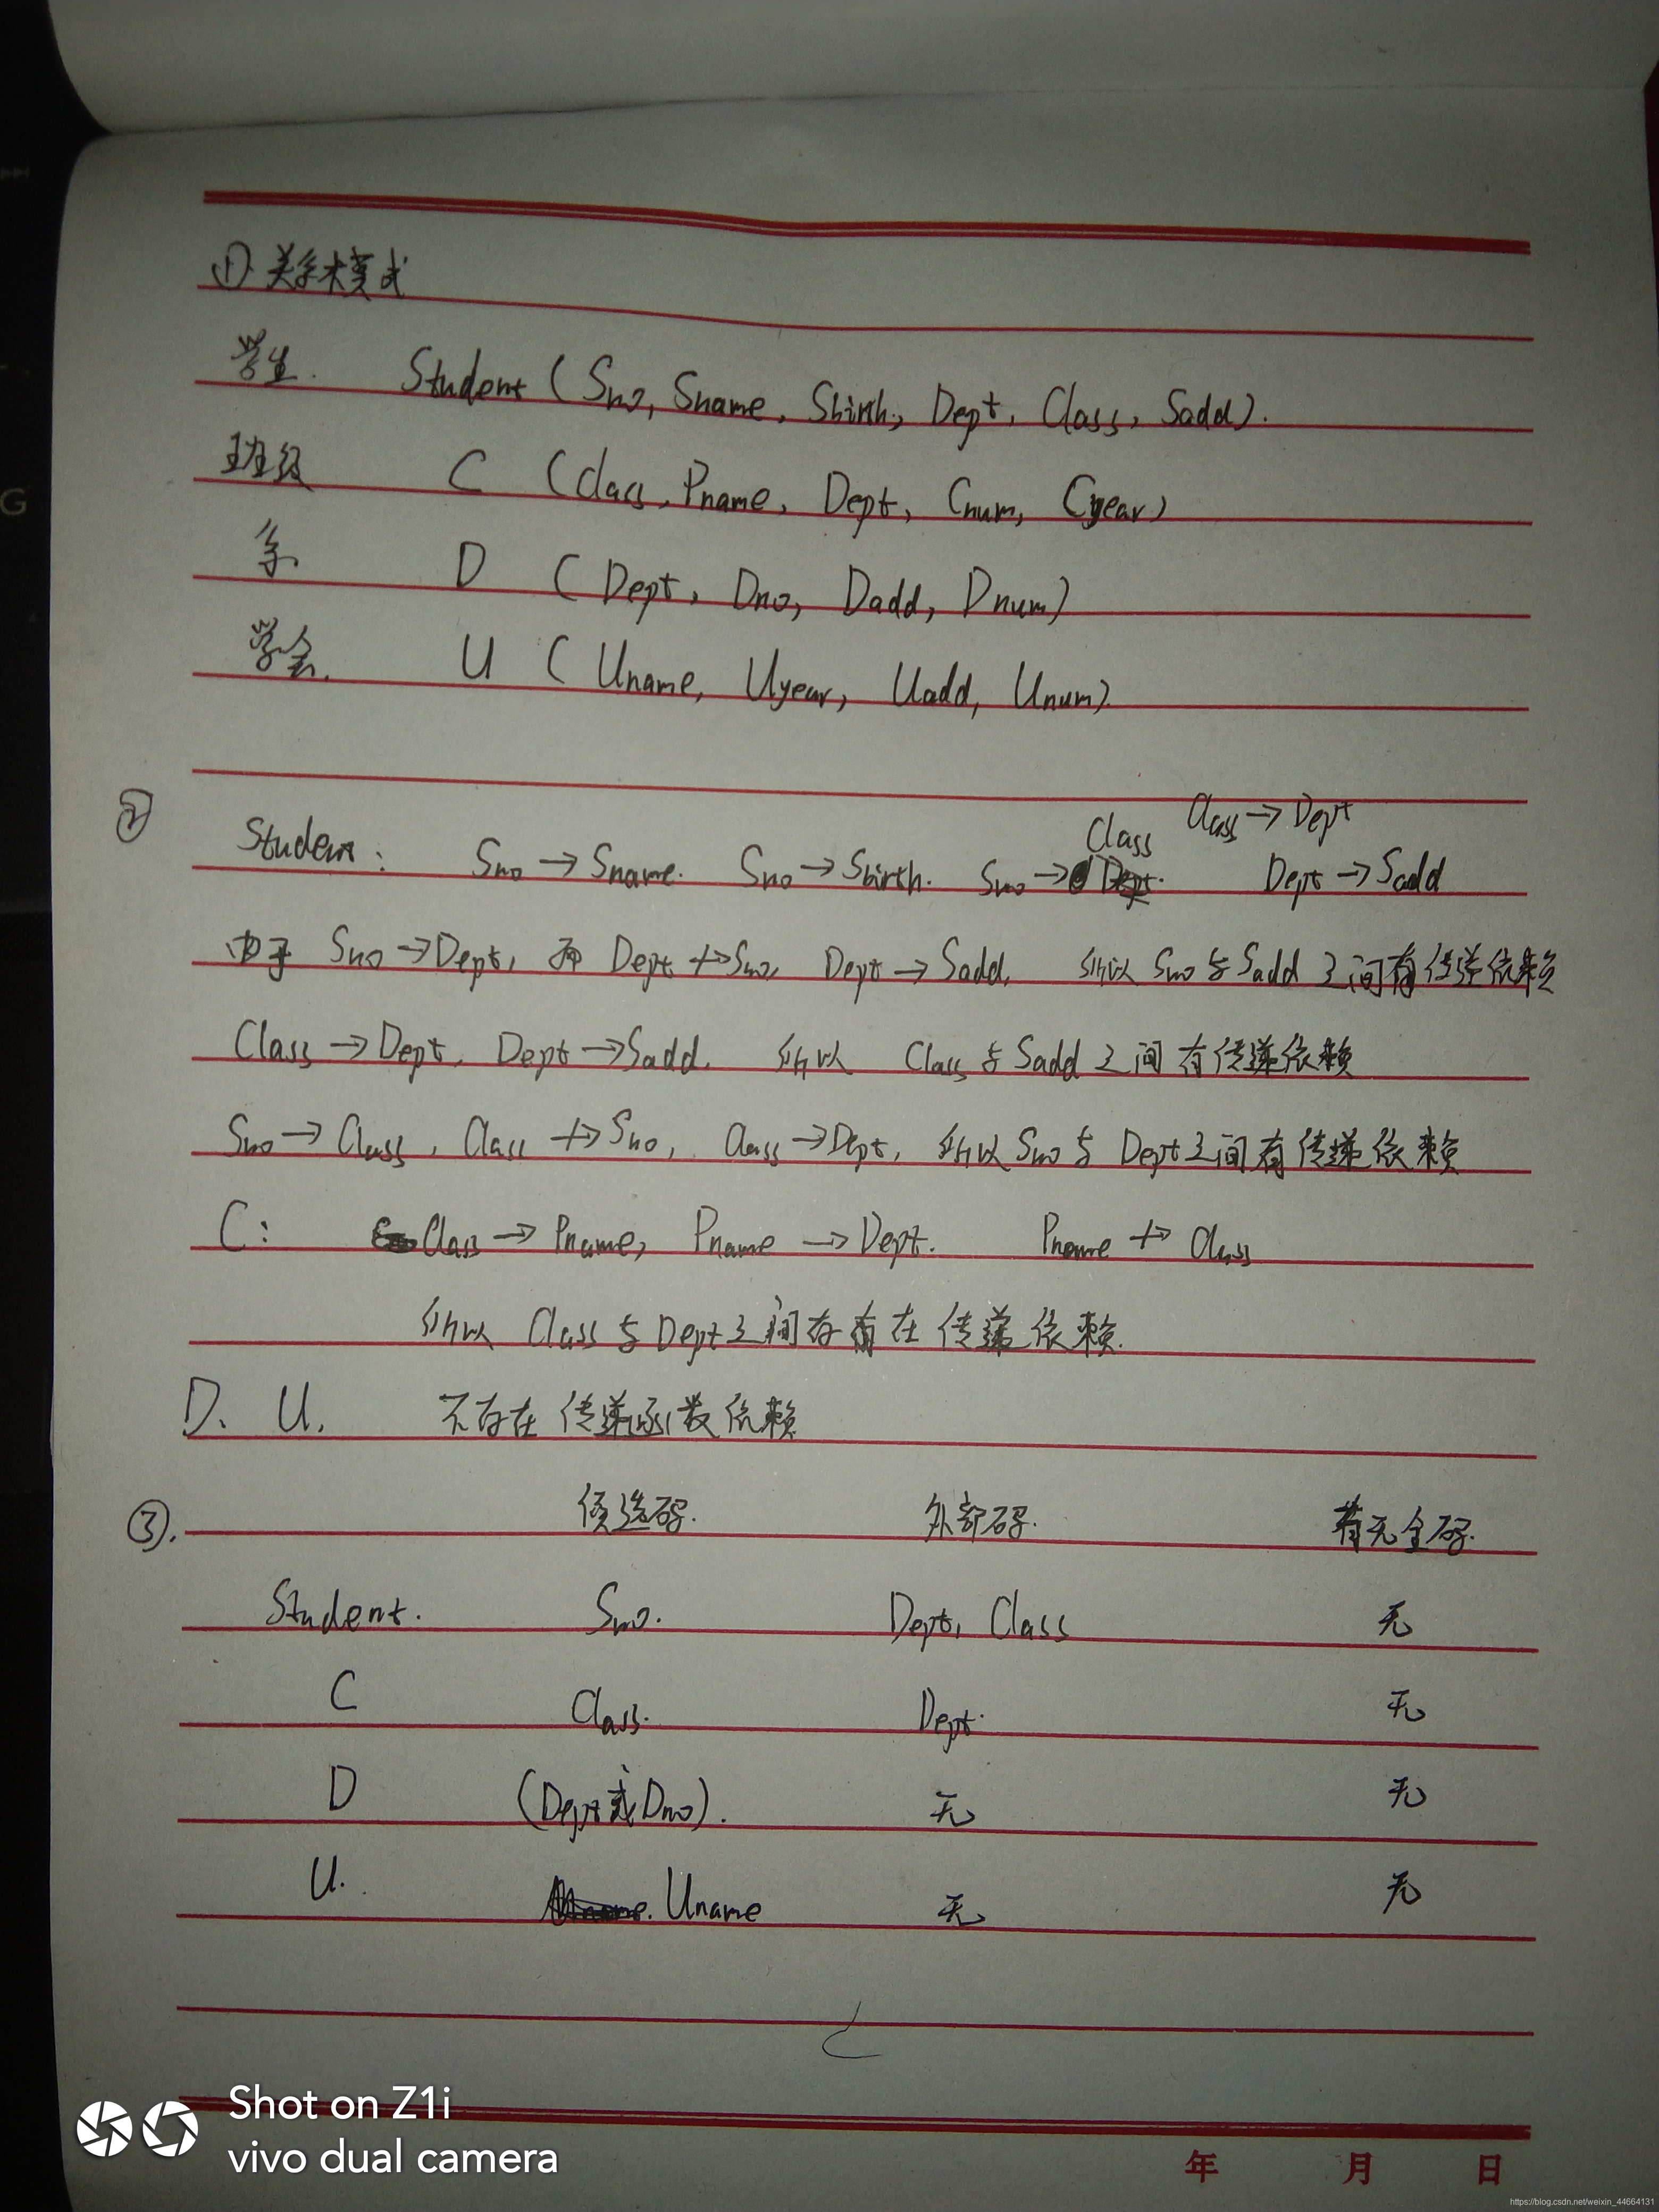 ① 关系模式
学生. Student ( Sno, Sname, Sbirth, Dept, Class, Sadd).
班级 C (Class, Pname, Dept, Cnum, Cyear)
系 D ( Dept, Dno, Dadd, Dnum)
学会. U ( Uname, Uyear, Uadd, Unum).
② Class Class → Dept
Student: Sno → Sname. Sno → Sbirth. Sno → Dept → Sadd
由于 Sno → Dept, 而 Dept ↛ Sno, Dept → Sadd, 所以 Sno 与 Sadd 之间有传递依赖
Class → Dept, Dept → Sadd. 所以 Class 与 Sadd 之间有传递依赖
Sno → Class, Class ↛ Sno, Class → Dept, 所以 Sno 与 Dept 之间有传递依赖
C: Class → Pname, Pname → Dept. Pname ↛ Class
所以 Class 与 Dept 之间存在传递依赖.
D. U. 不存在传递函数依赖
③. 候选码. 外部码. 有无全码.
Student. Sno. Dept, Class 无
C Class. Dept. 无
D (Dept或Dno). 无 无
U. Uname 无 无
Shot on Z1i
vivo dual camera
年 月 日
https://blog.csdn.net/weixin_44664131
G